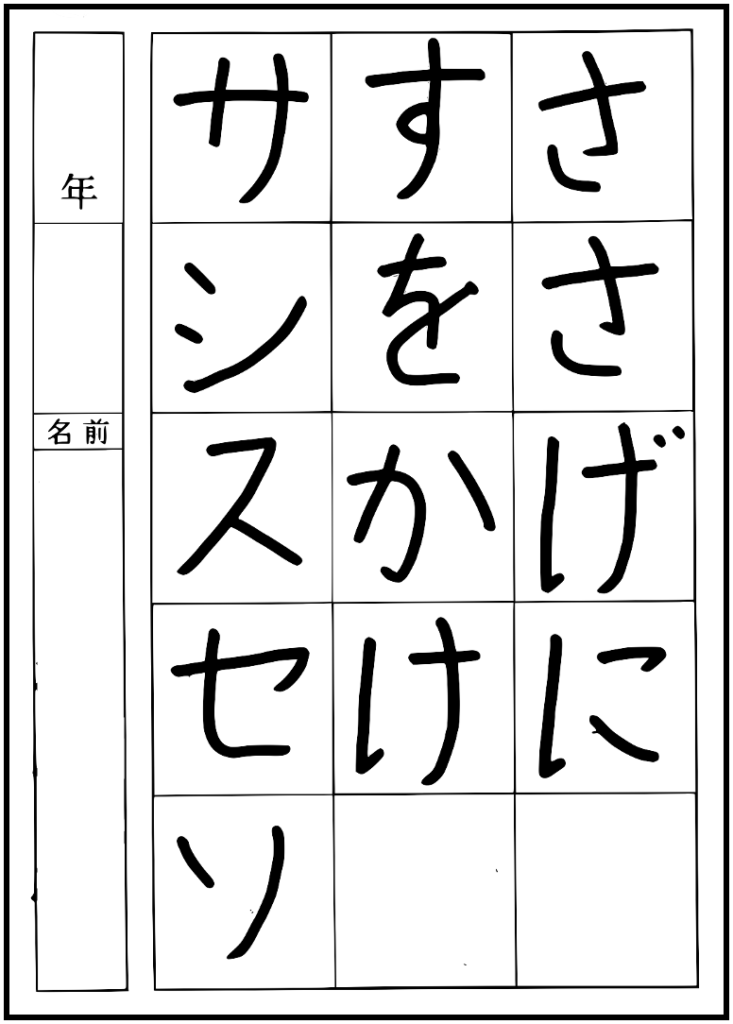 ささげに
すをかけ
サシスセソ
年
名前